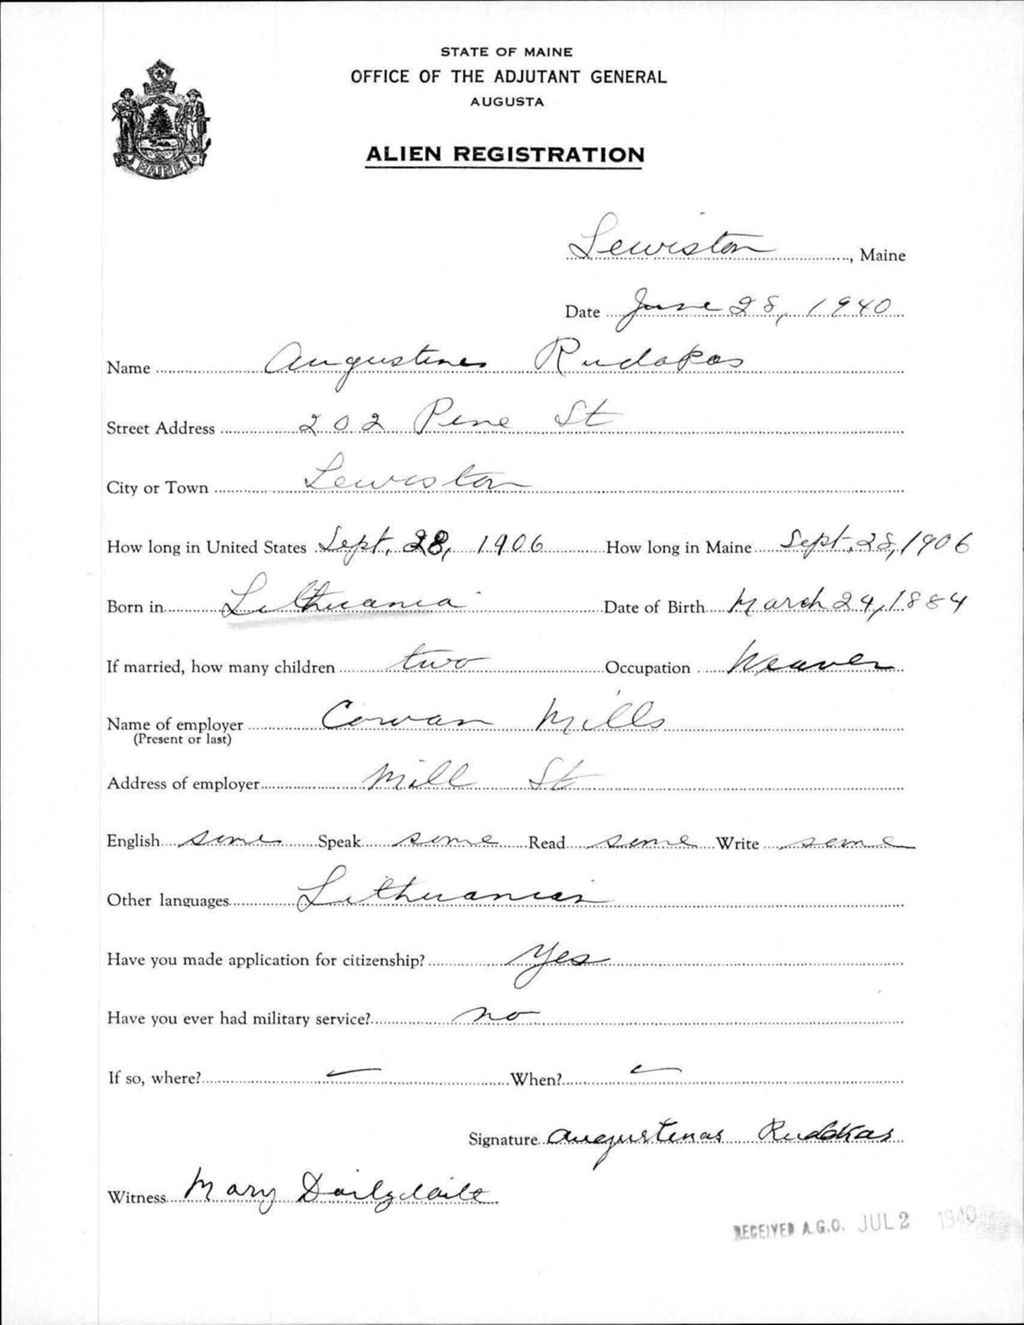 STATE OF MAINE
OFFICE OF THE ADJUTANT GENERAL
AUGUSTA
ALIEN REGISTRATION
MAINE
Lewiston, Maine
Date June 28, 1940
Name Augustenes Rudokas
Street Address 202 Pine St
City or Town Lewiston
How long in United States Sept. 28, 1906 How long in Maine Sept. 28, 1906
Born in Lithuania Date of Birth March 24, 1884
If married, how many children two Occupation Weaver
Name of employer Cowan Mills
(Present or last)
Address of employer Mill St
English some Speak some Read some Write some
Other languages Lithuanian
Have you made application for citizenship? Yes
Have you ever had military service? no
If so, where? — When? —
Signature Augustenas
Witness Mary
RECEIVED A.G.O. JUL 2 1940